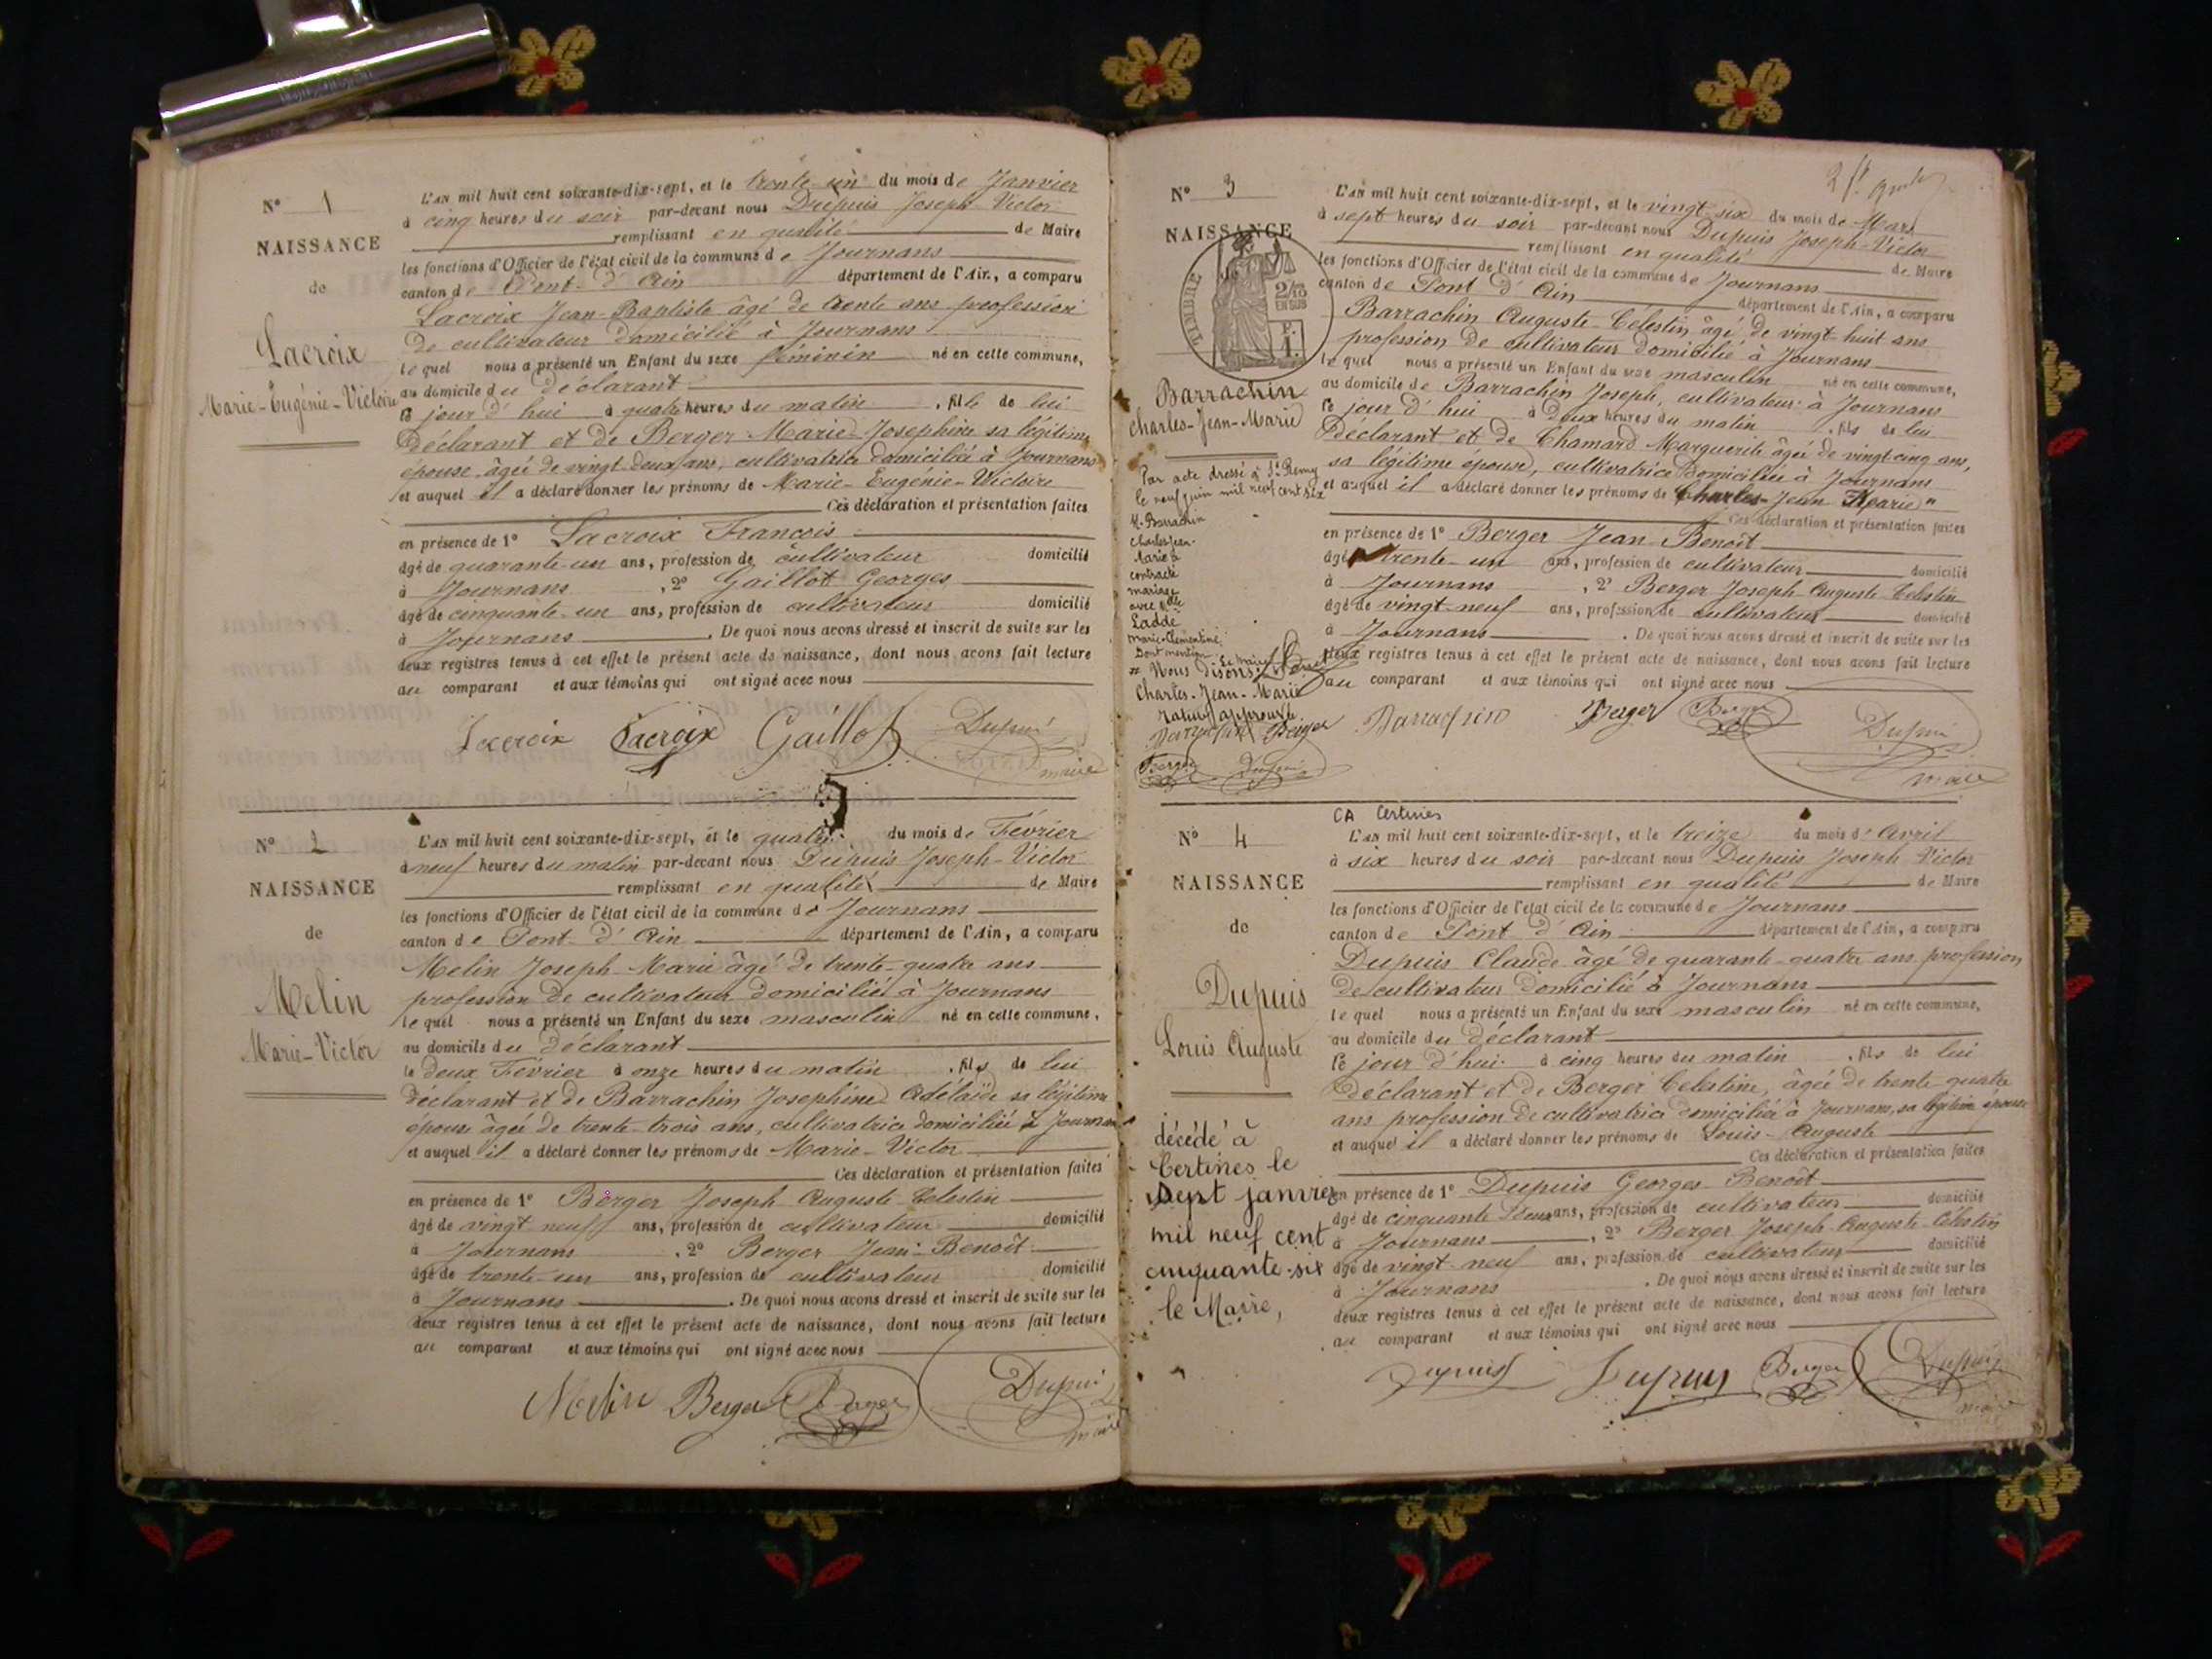 N° 1
NAISSANCE
de
Lacroix
Marie-Eugénie-Victoire
L'AN mil huit cent soixante-dix-sept, et le trente un du mois de Janvier
à cinq heures du soir par-devant nous Dupuis Joseph Victor
remplissant en qualité de Maire
les fonctions d'Officier de l'état civil de la commune de Journans
canton de Pont d'Ain département de l'Ain, a comparu
Lacroix Jean-Baptiste âgé de trente ans profession
de cultivateur domicilié à Journans
lequel nous a présenté un Enfant du sexe féminin né en cette commune,
au domicile du déclarant
le jour d'hui à quatre heures du matin, fille de lui
déclarant et de Berger Marie-Josephine sa légitime
épouse âgée de vingt deux ans, cultivatrice domiciliée à Journans
et auquel il a déclaré donner les prénoms de Marie-Eugénie-Victoire
Ces déclaration et présentation faites
en présence de 1° Lacroix François
âgé de quarante-un ans, profession de cultivateur domicilié
à Journans, 2° Gaillot Georges
âgé de cinquante-un ans, profession de cultivateur domicilié
à Journans. De quoi nous avons dressé et inscrit de suite sur les
deux registres tenus à cet effet le présent acte de naissance, dont nous avons fait lecture
au comparant et aux témoins qui ont signé avec nous
Lacroix Lacroix Gaillot Dupuis
maire
N° 2
NAISSANCE
de
Melin
Marie-Victor
L'AN mil huit cent soixante-dix-sept, et le quatre du mois de Février
à neuf heures du matin par-devant nous Dupuis Joseph-Victor
remplissant en qualité de Maire
les fonctions d'Officier de l'état civil de la commune de Journans
canton de Pont-d'Ain département de l'Ain, a comparu
Melin Joseph-Marie âgé de trente-quatre ans
profession de cultivateur domicilié à Journans
lequel nous a présenté un Enfant du sexe masculin né en cette commune,
au domicile du déclarant
le deux Février à onze heures du matin, fils de lui
déclarant et de Barrachin Josephine Adélaïde sa légitime
épouse âgée de trente-trois ans, cultivatrice domiciliée à Journans
et auquel il a déclaré donner les prénoms de Marie-Victor
Ces déclaration et présentation faites
en présence de 1° Berger Joseph Auguste Celestin
âgé de vingt neuf ans, profession de cultivateur domicilié
à Journans, 2° Berger Jean-Benoît
âgé de trente-un ans, profession de cultivateur domicilié
à Journans. De quoi nous avons dressé et inscrit de suite sur les
deux registres tenus à cet effet le présent acte de naissance, dont nous avons fait lecture
au comparant et aux témoins qui ont signé avec nous
Melin Berger Berger Dupuis
maire
N° 3
NAISSANCE
TIMBRE
2/10
EN SUS
F.
1.
Barrachin
Charles-Jean-Marie
Par acte dressé à St Remy
le neuf juin mil neuf cent six
M. Barrachin
Charles Jean-
Marie a
contracté
mariage
avec Dlle
Ladde
Marie-Clementine
Dont mention
Le Maire
Nous disons
Charles-Jean-Marie
rature approuvée
Barrachin Berger
Berger Dupuis
L'AN mil huit cent soixante-dix-sept, et le vingt six du mois de Mars
à sept heures du soir par-devant nous Dupuis Joseph-Victor
remplissant en qualité de Maire
les fonctions d'Officier de l'état civil de la commune de Journans
canton de Pont d'Ain département de l'Ain, a comparu
Barrachin Auguste-Célestin âgé de vingt-huit ans
profession de cultivateur domicilié à Journans
lequel nous a présenté un Enfant du sexe masculin né en cette commune,
au domicile de Barrachin Joseph, cultivateur à Journans
le jour d'hui à deux heures du matin, fils de lui
déclarant et de Chamard Marguerite âgée de vingt-cinq ans,
sa légitime épouse, cultivatrice domiciliée à Journans
et auquel il a déclaré donner les prénoms de Charles-Jean Marie
Ces déclaration et présentation faites
en présence de 1° Berger Jean Benoît
âgé trente-un ans, profession de cultivateur domicilié
à Journans, 2° Berger Joseph-Auguste-Celestin
âgé de vingt-neuf ans, profession de cultivateur domicilié
à Journans. De quoi nous avons dressé et inscrit de suite sur les
deux registres tenus à cet effet le présent acte de naissance, dont nous avons fait lecture
au comparant et aux témoins qui ont signé avec nous
Barrachin Berger Berger Dupuis
maire
N° 4
NAISSANCE
de
Dupuis
Louis Auguste
décédé à
Certines le
sept janvier
mil neuf cent
cinquante-six
le Maire,
CA Certines
L'AN mil huit cent soixante-dix-sept, et le treize du mois d'Avril
à six heures du soir par-devant nous Dupuis Joseph Victor
remplissant en qualité de Maire
les fonctions d'Officier de l'état civil de la commune de Journans
canton de Pont d'Ain département de l'Ain, a comparu
Dupuis Claude âgé de quarante-quatre ans profession
de cultivateur domicilié à Journans
lequel nous a présenté un Enfant du sexe masculin né en cette commune,
au domicile du déclarant
le jour d'hui à cinq heures du matin, fils de lui
déclarant et de Berger Celestine, âgée de trente quatre
ans profession de cultivatrice domiciliée à Journans, sa légitime épouse
et auquel il a déclaré donner les prénoms de Louis-Auguste
Ces déclaration et présentation faites
en présence de 1° Dupuis Georges-Benoît
âgé de cinquante deux ans, profession de cultivateur domicilié
à Journans, 2° Berger Joseph-Auguste-Célestin
âgé de vingt neuf ans, profession de cultivateur domicilié
à Journans. De quoi nous avons dressé et inscrit de suite sur les
deux registres tenus à cet effet le présent acte de naissance, dont nous avons fait lecture
au comparant et aux témoins qui ont signé avec nous
Dupuis Dupuis Berger Dupuis
maire